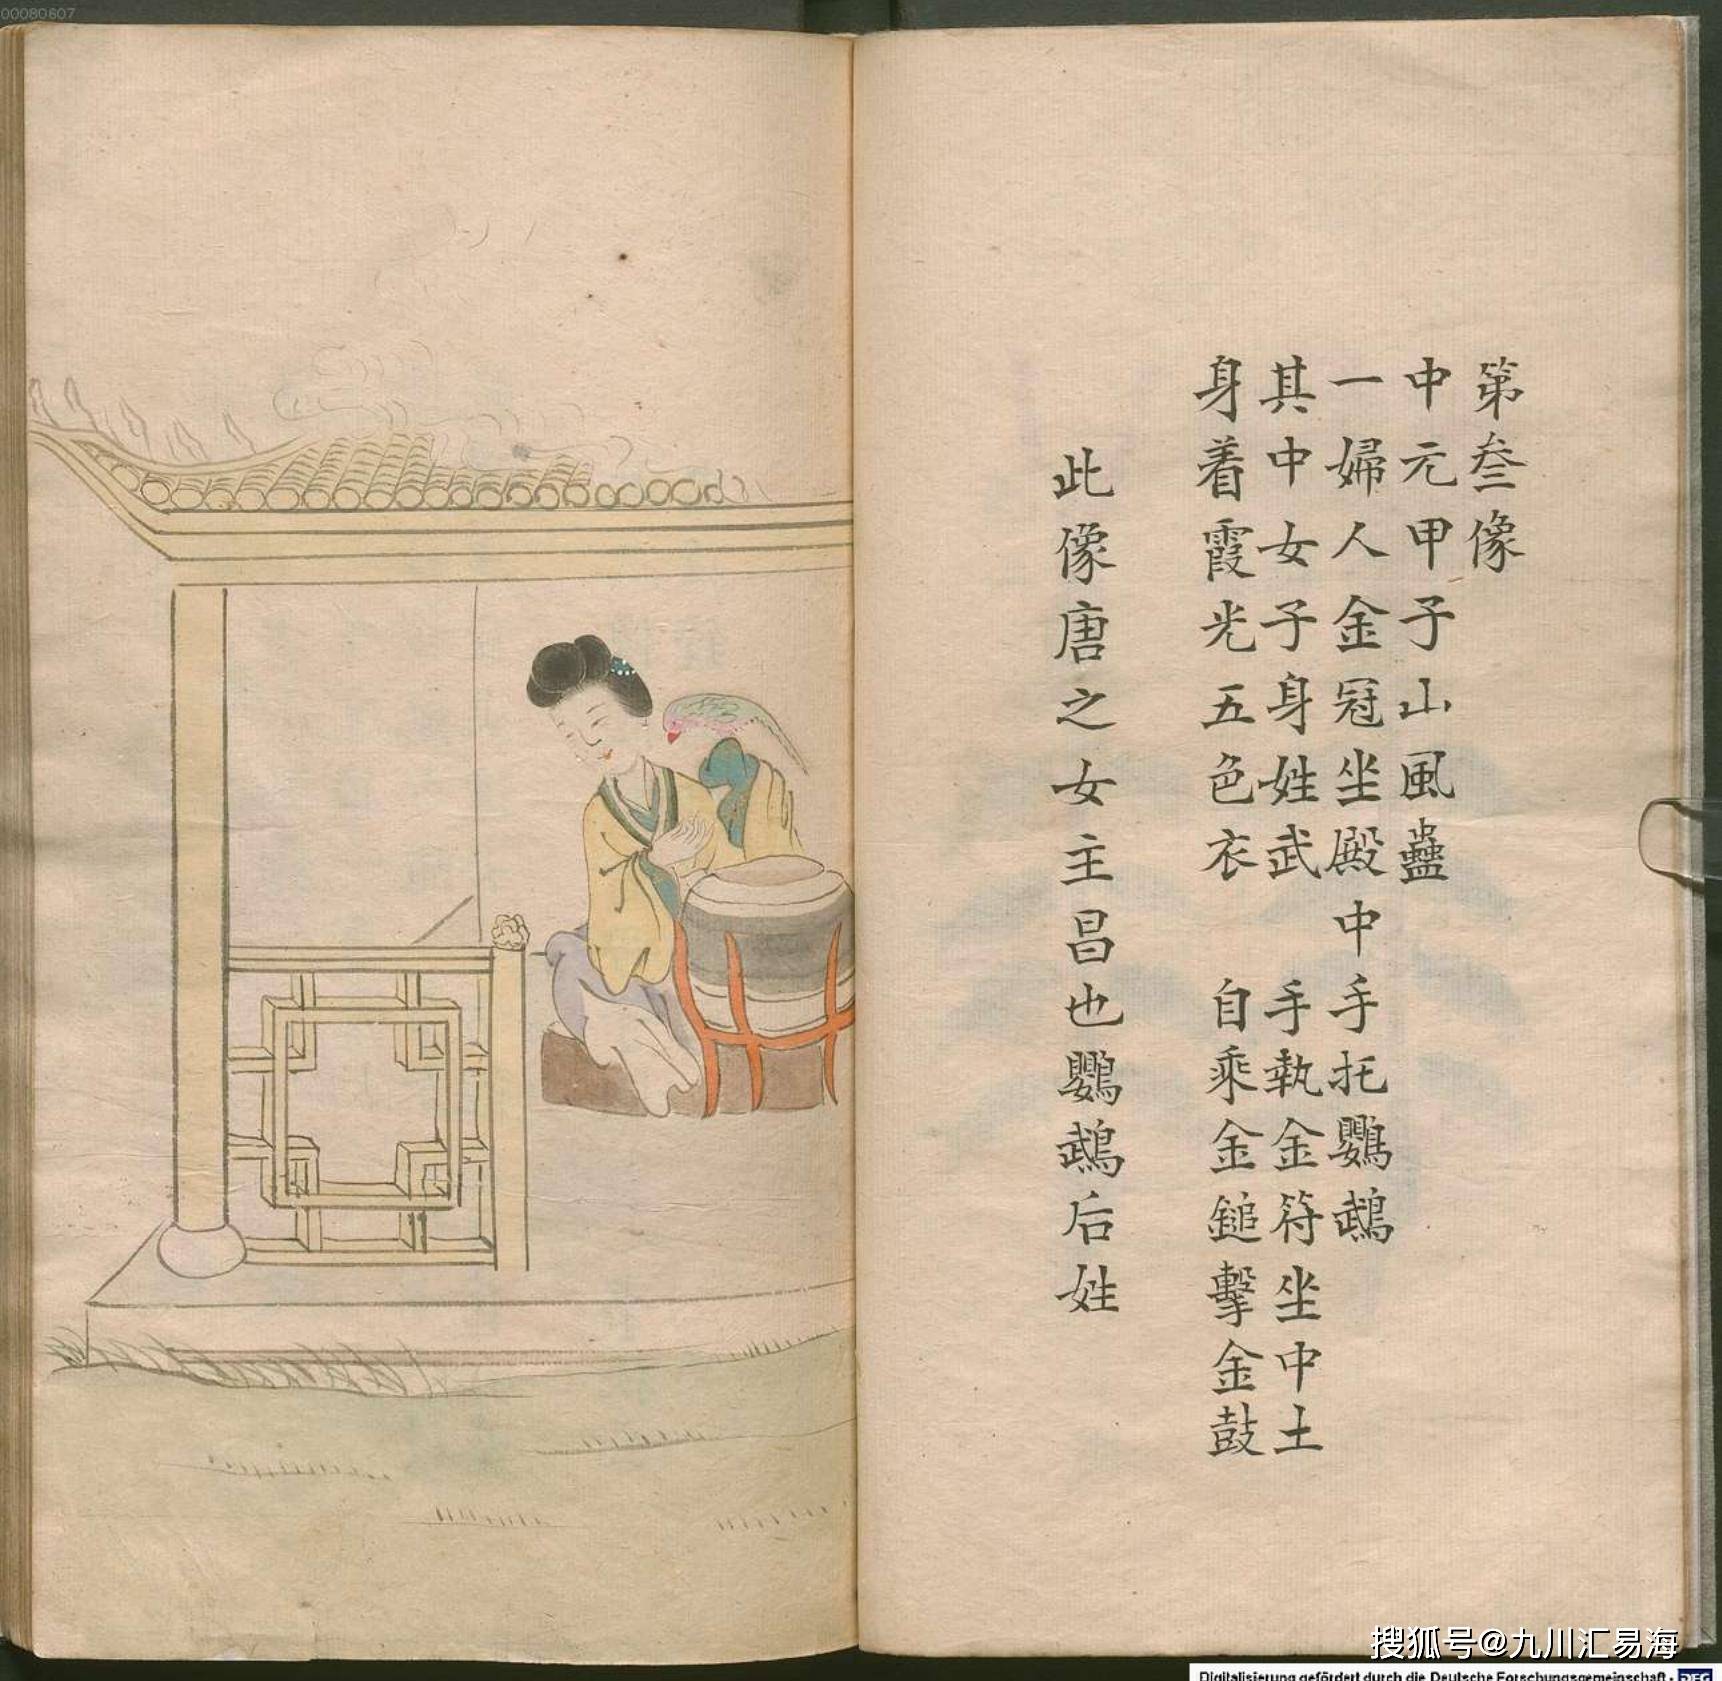 第叁像
中元甲子山風蠱
一婦人金冠坐殿中手托鸚鵡
其中女子身姓武 手執金符坐中土
身着霞光五色衣 自乘金鎚擊金鼓
此像唐之女主昌也鸚鵡后姓
00080607
搜狐号@九川汇易海
Digitalisierung gefördert durch die Deutsche Forschungsgemeinschaft - DFG